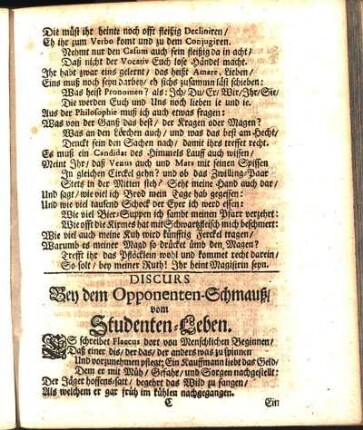 Die müst ihr heinte noch offt fleißig Decliniren/
Eh ihr zum Verbo komt und zu dem Conjugiren.
Nehmt nur den Casum auch fein fleißig da in acht/
Daß nicht der Vocativ Euch lose Händel macht.
Ihr habt zwar eins gelernt/ das heist Amare, Lieben/
Eins muß noch seyn darbey/ eh sichs zusammen läst schieben:
Was heist Pronomen? als: Ich/ Du/ Er/ Wir/ Ihr/ Sie/
Die werden Euch und Uns noch lieben ie und ie.
Aus der Philosophie muß ich auch etwas fragen:
Was von der Ganß das best/ der Kragen oder Magen?
Was an den Lörchen auch/ und was das best am Hecht/
Denckt fein den Sachen nach/ damit ihrs treffet recht.
Es muß ein Candidat des Himmels Lauff auch wissen/
Meint Ihr/ daß Venus auch und Mars mit seinen Spissen
In gleichen Circkel gehn? und ob das Zwilling-Paar
Stets in der Mitten sich/ Seht meine Hand auch dar/
Und sagt/ wie viel ich Brod mein Tage hab gegessen:
Und wie viel tausend Schock der Eyer ich werd essen:
Wie viel Bier-Suppen ich sambt meinen Pfarr verzehrt:
Wie offt die Kirmes hat mit Schwartzfleisch mich beschmiert:
Wie viel auch meine Kuh wird künfftig Ferckel tragen/
Warumb es meiner Magd so drücket ümb den Magen?
Trefft ihr das Pflöcklein wohl und kommet recht darein/
So solt/ bey meiner Ruth! Ihr heint Magistrin seyn.
DISCURS
Bey dem Opponenten-Schmauß/
vom
Studenten-Leben.
ES schreibet Flaccus dort von Menschlichen Beginnen/
Daß einer dis/ der das/ der anders was zu spinnen
Und vorzunehmen pflegt; Ein Kauffmann liebt das Geld/
Dem er mit Müh/ Gefahr/ und Sorgen nachgestellt:
Der Jäger hoffens-satt/ begehrt das Wild zu fangen/
Als welchem er gar früh im kühlen nachgegangen.
C Ein